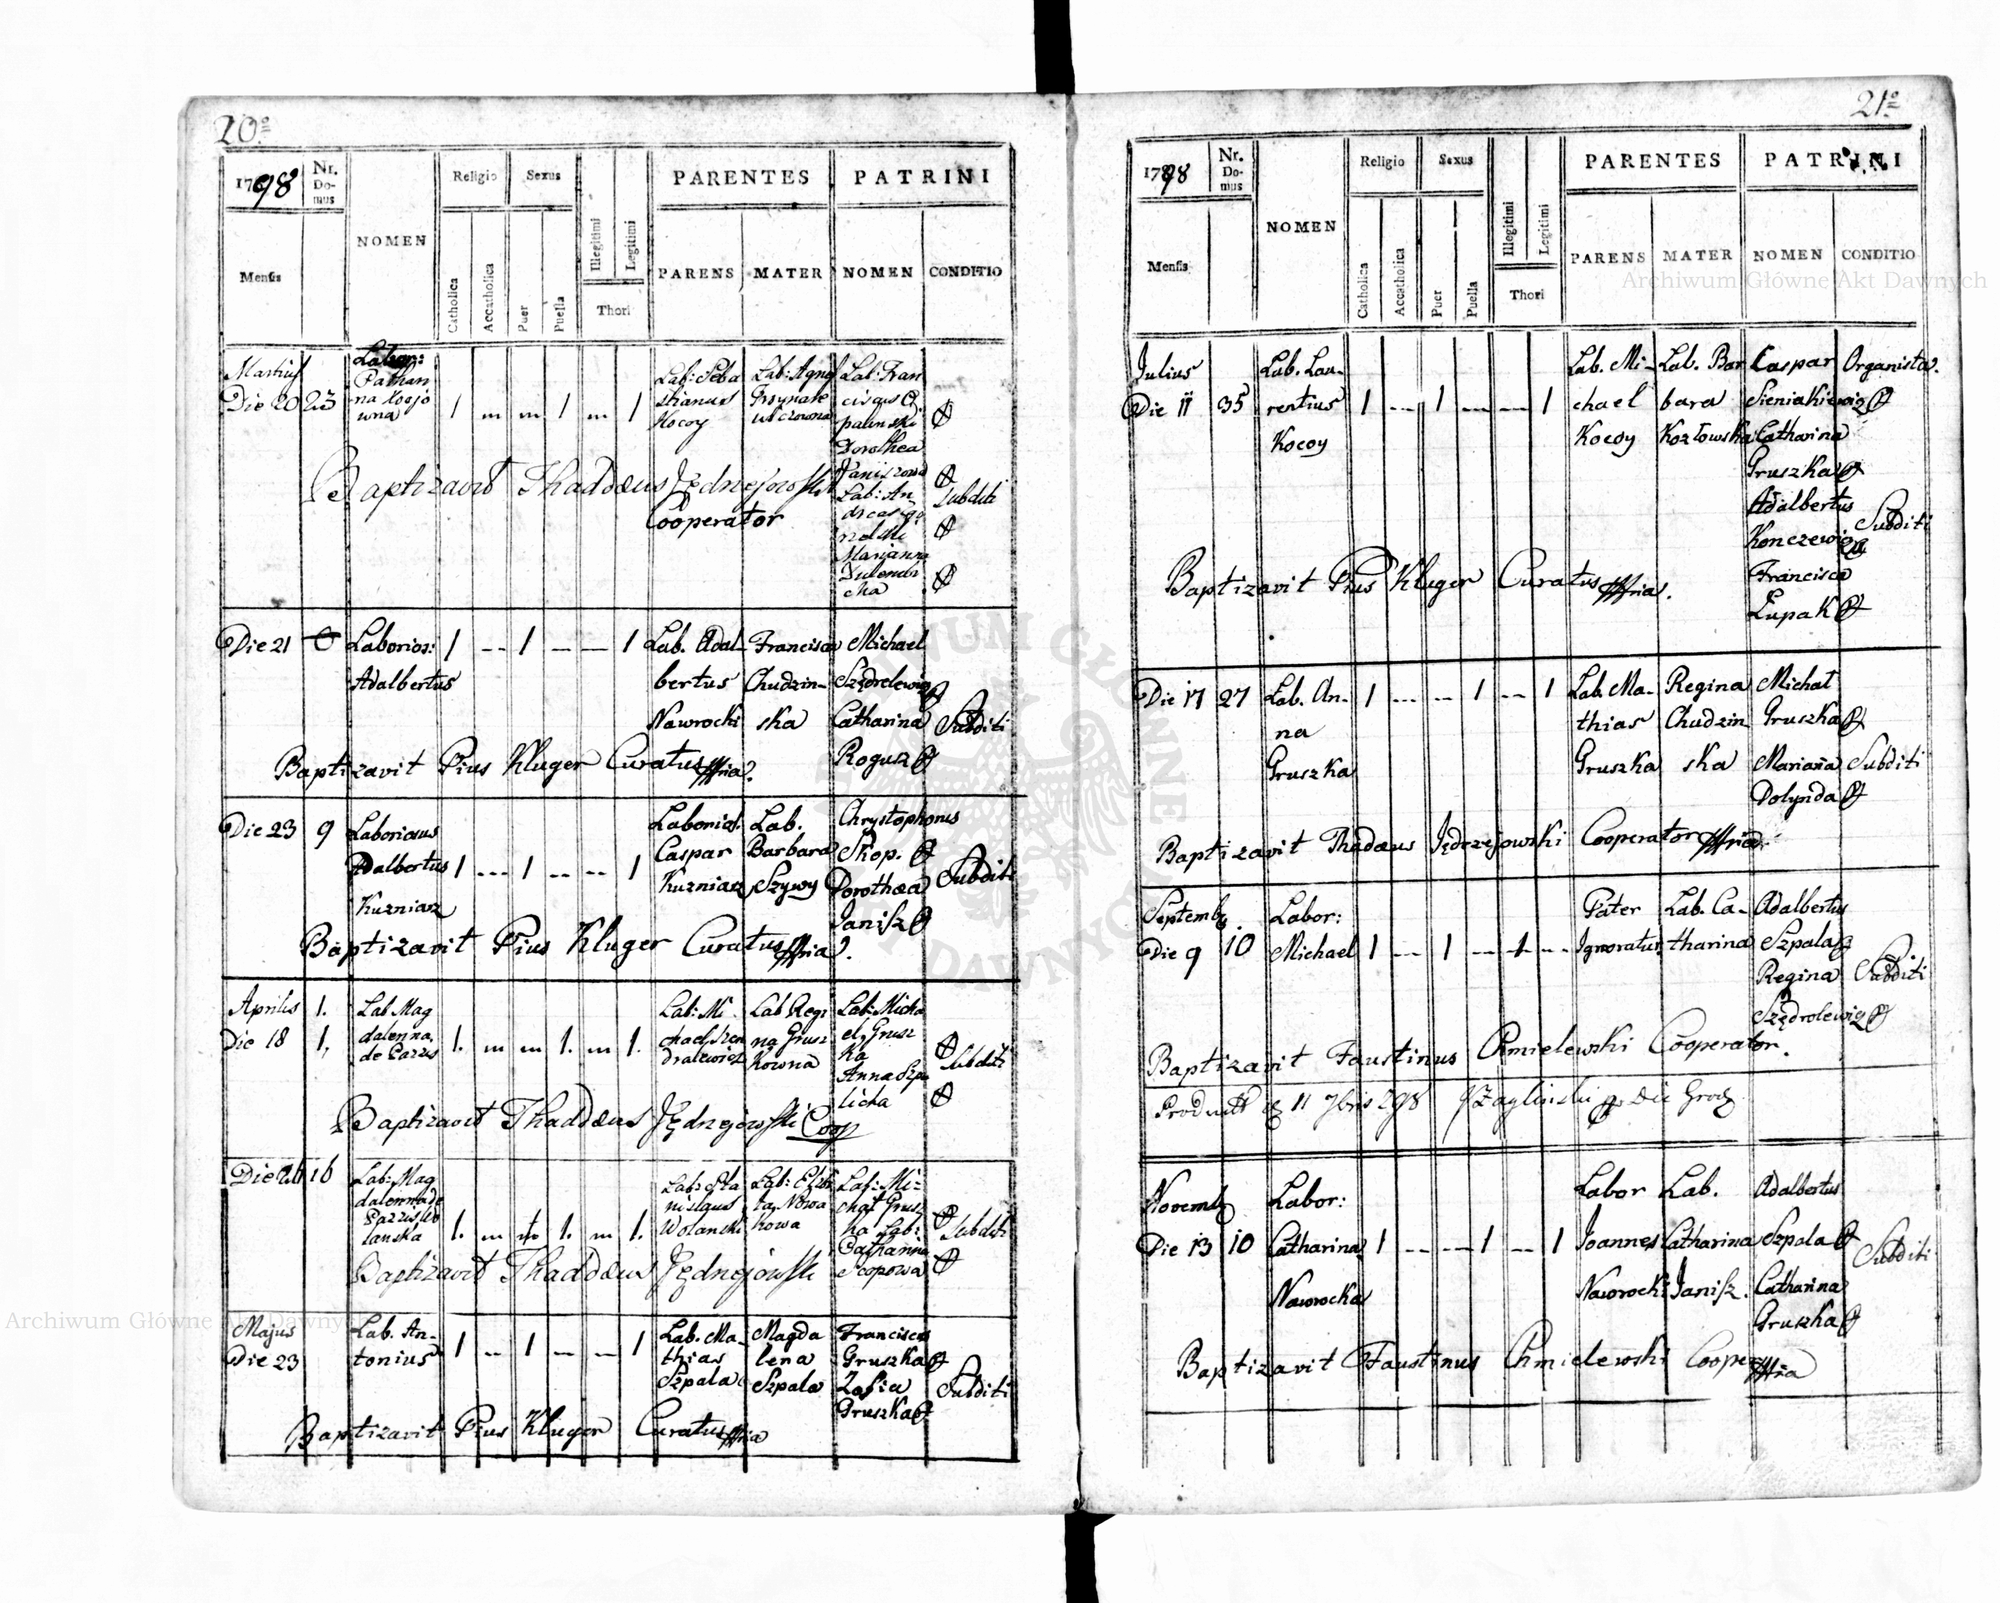 20º
1798
Nr. Do-mus
Mensis
NOMEN
Religio
Catholica
Accatholica
Sexus
Puer
Puella
Illegitimi
Legitimi
Thori
PARENTES
PARENS
MATER
PATRINI
NOMEN
CONDITIO
Martius Die 20
23
Labor:
1 m m 1 m 1
Lab: Seba
stianus
Kocoy
Lab: Agnes
Lab: Fran
ciscus
Dorothea
Lab: An
Marianna
Subditi
Baptizavit Thaddæus Jędrzejowski
Cooperator
Die 21
Laborios:
Adalbertus
1 -- 1 -- -- 1
Lab. Adal-
bertus
Nawrocki
Francisca
Chudzin-
ska
Michael
Szędrolewicz
Catharina
Rogusz
Subditi
Baptizavit Pius Kluger Curatus mpria
Die 23
9
Laboriosus
Adalbertus
Kuzniarz
1 --- 1 -- -- 1
Laborios.
Caspar
Kuzniarz
Lab.
Barbara
Szywy
Chrystophorus
Skop.
Dorothæa
Janisz
Subditi
Baptizavit Pius Kluger Curatus mpria
Aprilis
Die 18
1.
1,
Lab Mag
dalenna
de Pazzis
1. m m 1. m 1.
Lab: Mi
chael Szen
dralewicz
Lab Regi
na Grusz
kowna
Lab: Micha
el Grusz
ka
Anna Szpa
licha
Subditi
Baptizavit Thaddæus Jędrzejowski Coop
Die 26
16
Lab: Mag
dalenna de
Pazzis Wo
lanska
1. m m 1. m 1.
Lab: Sta
nislaus
Wolanski
Lab: Elzbi
ta Nowa
kowa
Lab: Mi-
chał Grusz
ka Lab:
Catharina
Scopowa
Subditi
Baptizavit Thaddæus Jędrzejowski
Majus
Die 23
Lab. An-
tonius
1 -- 1 -- -- 1
Lab. Ma-
thias
Szpala
Magda
lena
Szpala
Franciscus
Gruszka
Zofia
Gruszka
Subditi
Baptizavit Pius Kluger Curatus mpria
21º
1798
Nr. Do-mus
Mensis
NOMEN
Religio
Catholica
Accatholica
Sexus
Puer
Puella
Illegitimi
Legitimi
Thori
PARENTES
PARENS
MATER
PATRINI
NOMEN
CONDITIO
Julius
Die 11
35
Lab. Lau-
rentius
Kocoy
1 -- 1 -- -- 1
Lab. Mi-
chael
Kocoy
Lab. Bar
bara
Kozłowska
Caspar
Sieniakiewicz
Catharina
Gruszka
Adalbertus
Konczewicz
Francisca
Łupak
Organista.
Subditi
Baptizavit Pius Kluger Curatus mpria.
Die 17
27
Lab. An-
na
Gruszka
1 --- -- 1 -- 1
Lab. Ma-
thias
Gruszka
Regina
Chudzin
ska
Michał
Gruszka
Mariaña
Dolynda
Subditi
Baptizavit Thadæus Jędrzejowski Cooperator mpria.
Septemb.
Die 9
10
Labor:
Michael
1 -- 1 -- 1 --
Pater
Ignoratur.
Lab. Ca-
tharina
Adalbertus
Szpala
Regina
Szędrolewicz
Subditi
Baptizavit Faustinus Chmielewski Cooperator.
11 7bris 798
Novemb
Die 13
10
Labor:
Catharina
Nawrocka
1 -- -- 1 -- 1
Labor
Joannes
Nawrocki
Lab.
Catharina
Janisz.
Adalbertus
Szpala
Catharina
Gruszka
Subditi
Baptizavit Faustinus Chmielewski Cooper mpria
Archiwum Główne Akt Dawnych
Archiwum Główne Akt Dawnych
ARCHIWUM GŁÓWNE AKT DAWNYCH